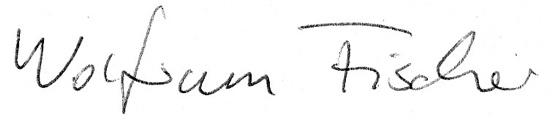 Wolfram Fischer